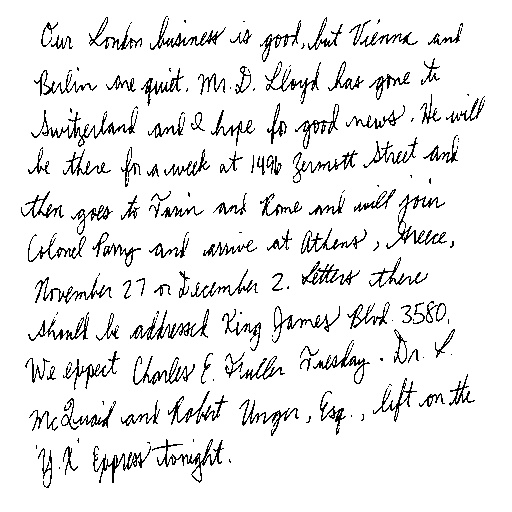 Our London business is good, but Vienna and
Berlin are quiet. Mr. D. Lloyd has gone to
Switzerland and I hope for good news. He will
be there for a week at 1496 Zermott Street and
then goes to Turin and Rome and will join
Colonel Parry and arrive at Athens, Greece,
November 27 or December 2. Letters there
should be addressed King James Blvd. 3580.
We expect Charles E. Fuller Tuesday. Dr. L.
McQuaid and Robert Unger, Esq., left on the
'Y.X' Express tonight.